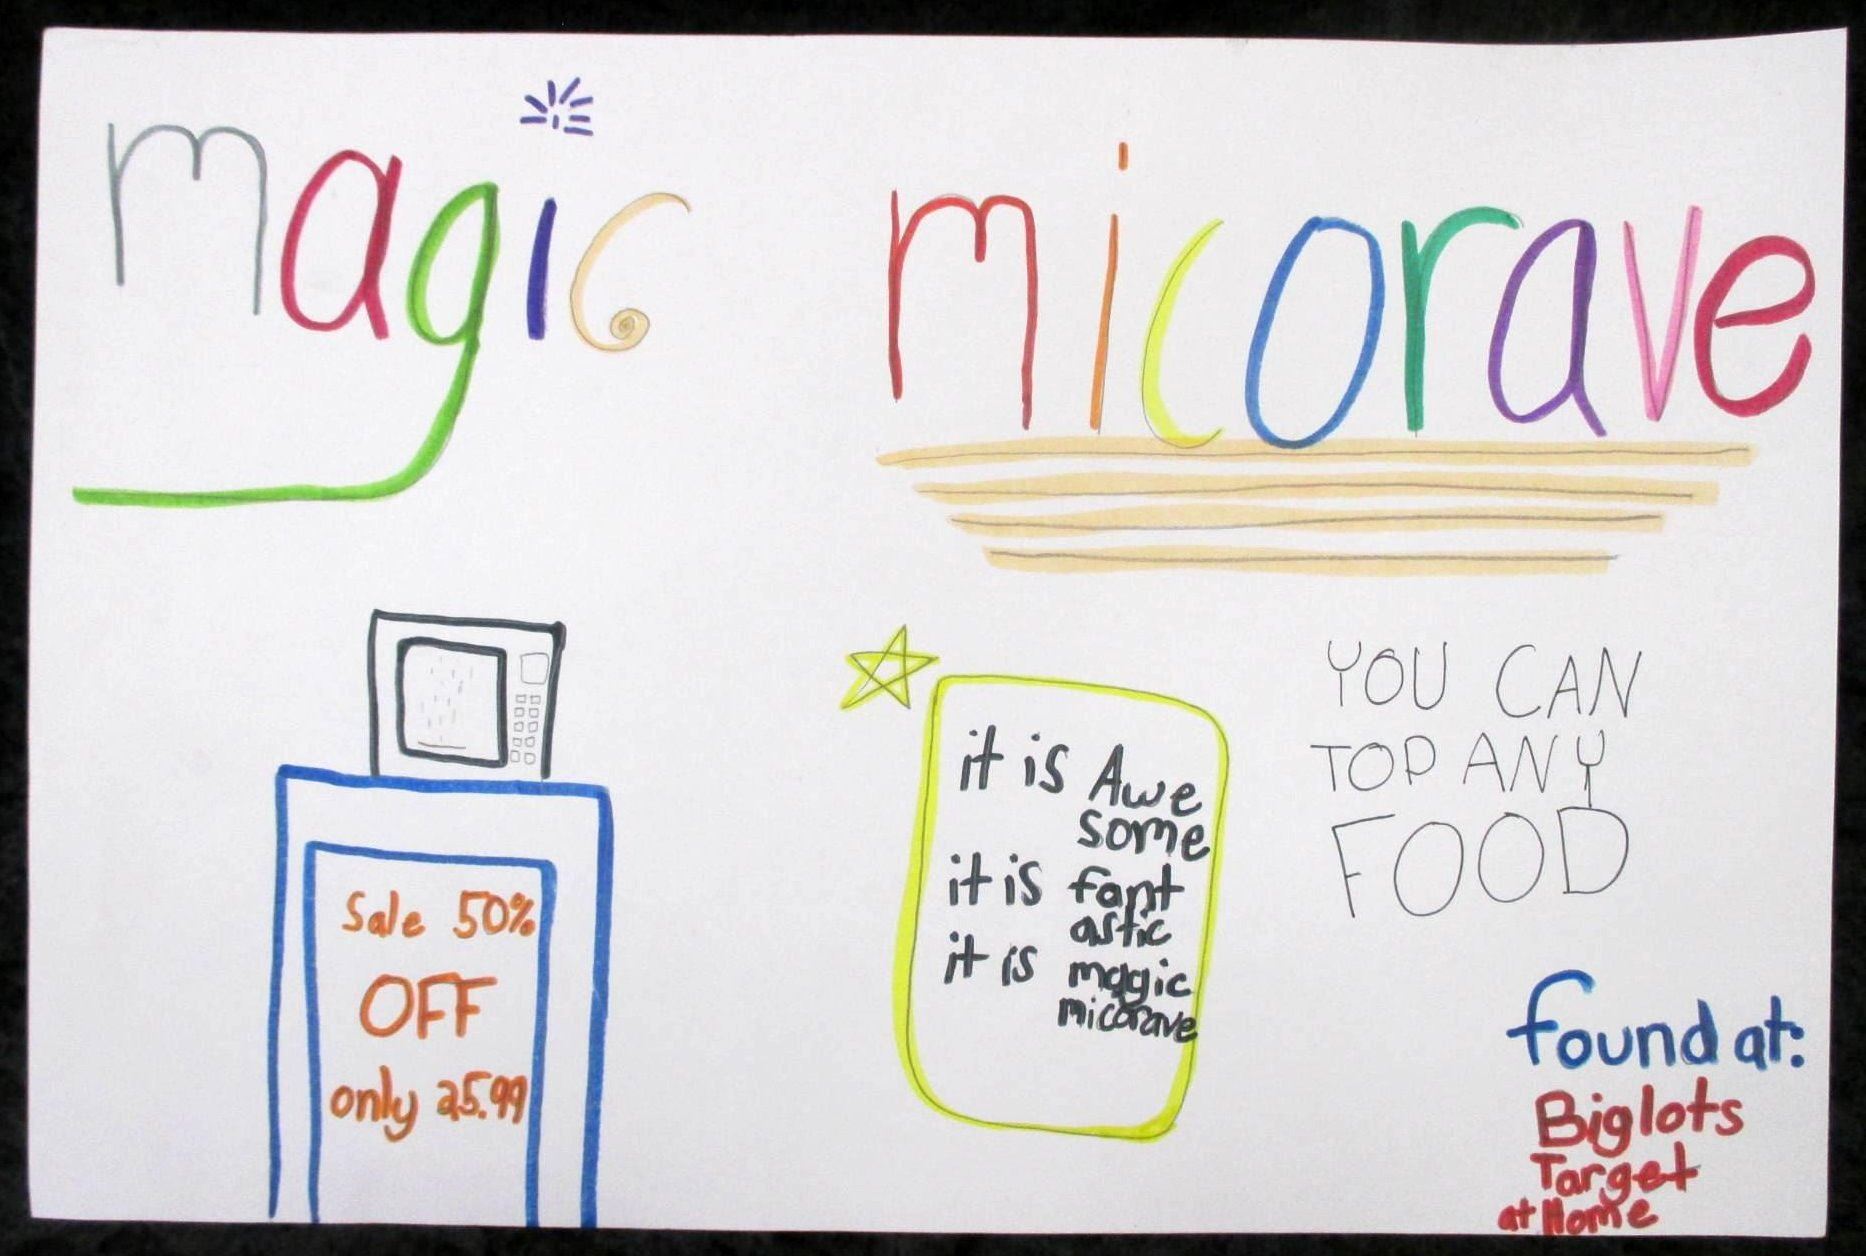 magic micorave
Sale 50%
OFF
only 25.99
it is Awe
some
it is fant
astic
it is magic
micorave
YOU CAN
TOP ANY
FOOD
found at:
Biglots
Target
at Home